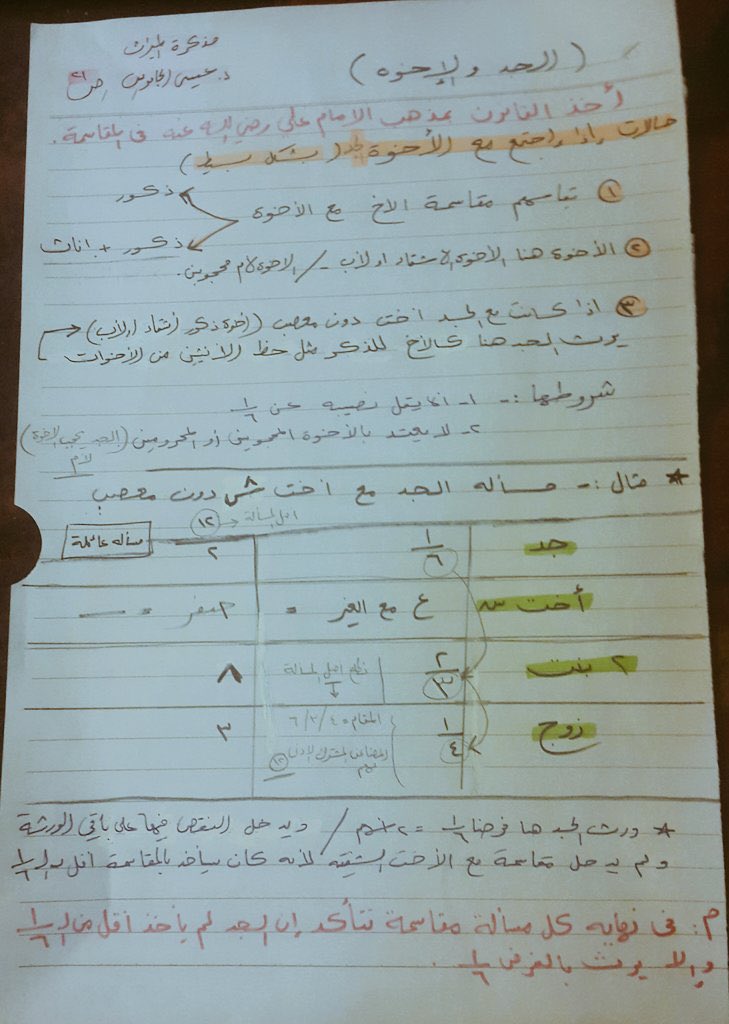 مذكرة الميراث
د. عيسى ص ٢١
( الجد والإخوة )
أخذ القانون بمذهب الامام علي رضي الله عنه في المقاسمة .
حالات إذا اجتمع مع الأخوة لجد ( بشكل بسيط )
① تقاسمهم مقاسمة الاخ مع الأخوة
ذكور
ذكور + اناث
② الأخوة هنا الأخوة الاشقاء او لأب - / الاخوة لأم محجوبين .
③ اذا كانت مع الجد اخت دون معصب (أخوة ذكور أشقاء او لأب)
يورث الجد هنا كالأخ للذكر مثل حظ الأنثيين من الأخوات
شروطها :- ١- ألا يقل نصيبه عن ١/٦
٢- لا يعتد بالأخوة المحجوبين أو المحرومين (الجد يحجب الاخوة
لأم)
* مثال :- مسأله الجد مع اخت ش دون معصب
اصل المسألة → ١٢
مسأله عائلة
جد ١/٦ ٢
أخت ش ع مع الغير = صفر = —
٢ بنت ٢/٣ نطلع اصل المسألة ٨
زوج ١/٤ المقام = ٤ / ٣ / ٦ ٣
المضاعف المشترك الادنى لهم ١٢
* ورث الجد هنا فرضا ١/٦ = ٢ / ويدخل النقص فيها على باقي الورثة
ولم يدخل مقاسمة مع الأخت الشقيقة لأنه كان سيأخذ بالمقاسمة اقل من الـ ١/٦
م : في نهاية كل مسألة مقاسمة نتأكد إن الجد لم يأخذ أقل من الـ ١/٦
وإلا يورث بالفرض ١/٦ .